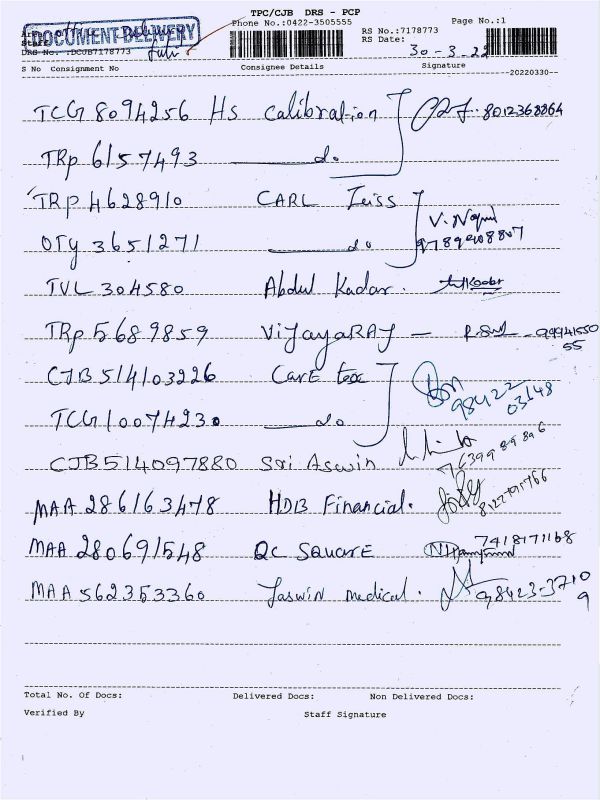 TPC/CJB DRS - PCP
DOCUMENT DELIVERY
Phone No.:0422-3505555
Page No.:1
RS No.:7178773
RS Date: 30-3-22
DRS No. :DCJB7178773
S No Consignment No Consignee Details Signature
--20220330--
TCG 8094256 Hs Calibration 8012368864
TRP 6157493 do
TRP 4628910 CARL Zeiss V.
OTY 3651271 do 9789408807
TVL 304580 Abdul Kadar.
TRP 5689859 VIJAYARAJ — 9994155055
CJB 514103226 Care tex 98422 03148
TCG 10074230 do
CJB514097880 Sri Aswin 7639989896
MAA 286163478 HDB Financial.
MAA 280691548 QC SQUARE 7418171168
MAA 562353360 Jaswin medical. 98423-37109
Total No. Of Docs: Delivered Docs: Non Delivered Docs:
Verified By Staff Signature